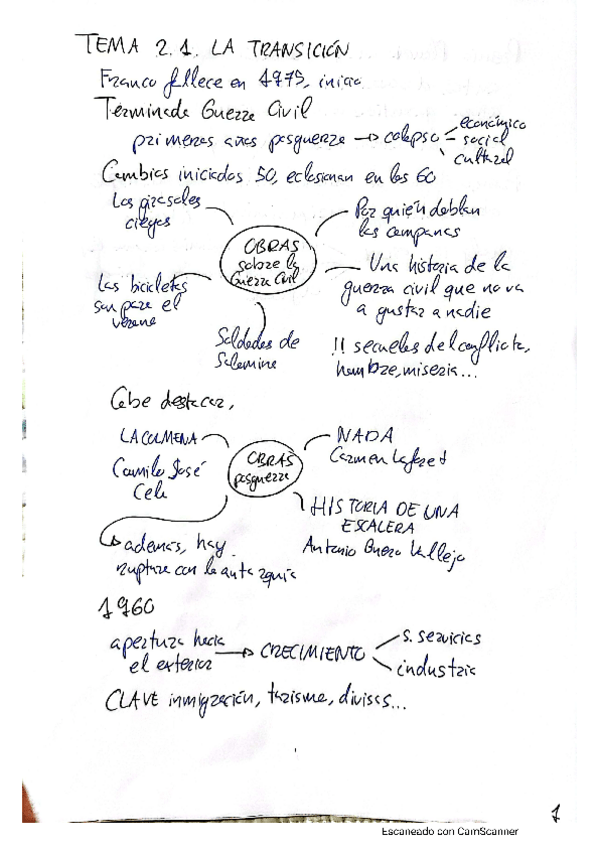 TEMA 2.1. LA TRANSICIÓN
Franco fallece en 1975, inicia
Terminada Guerra Civil
primeros años posguerra → colapso
económico
social
cultural
Cambios iniciados 50, eclosionan en los 60
Los girasoles
ciegos
Por quién doblan
las campanas
OBRAS
sobre la
Guerra Civil
Las bicicletas
son para el
verano
Una historia de la
guerra civil que no va
a gustar a nadie
Soldados de
Salamina
!! secuelas del conflicto,
hambre, miseria...
Cabe destacar,
LA COLMENA
Camilo José
Cela
OBRAS
posguerra
NADA
Carmen Laforet
HISTORIA DE UNA
ESCALERA
Antonio Buero Vallejo
↳ además, hay
ruptura con la autarquía
1960
apertura hacia
el exterior → CRECIMIENTO
s. servicios
industria
CLAVE inmigración, turismo, divisas...
1
Escaneado con CamScanner